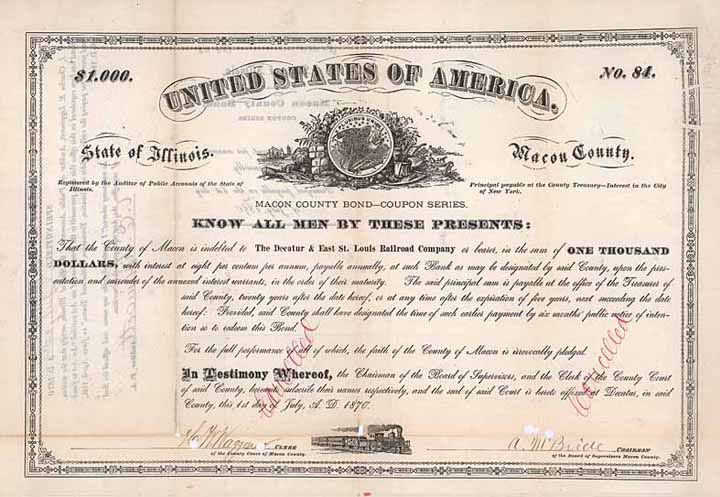 $1.000.
No. 84.
UNITED STATES OF AMERICA.
State of Illinois.
Macon County.
Registered by the Auditor of Public Accounts of the State of
Illinois.
Principal payable at the County Treasury—Interest in the City
of New York.
MACON COUNTY BOND—COUPON SERIES.
KNOW ALL MEN BY THESE PRESENTS:
That the County of Macon is indebted to The Decatur & East St. Louis Railroad Company or bearer, in the sum of ONE THOUSAND
DOLLARS, with interest at eight per centum per annum, payable annually, at such Bank as may be designated by said County, upon the pres-
entation and surrender of the annexed interest warrants, in the order of their maturity. The said principal sum is payable at the office of the Treasurer of
said County, twenty years after the date hereof, or at any time after the expiration of five years, next succeeding the date
hereof: Provided, said County shall have designated the time of such earlier payment by six months' public notice of inten-
tion so to redeem this Bond.
For the full performance of all of which, the faith of the County of Macon is irrevocably pledged.
In Testimony Whereof, the Chairman of the Board of Supervisors, and the Clerk of the County Court
of said County, hereunto subscribe their names respectively, and the seal of said Court is hereto affixed at Decatur, in said
County, this 1st day of July, A. D. 1870.
Cancelled
Cancelled
CLERK
of the County Court of Macon County.
A. McBride CHAIRMAN
of the Board of Supervisors Macon County.